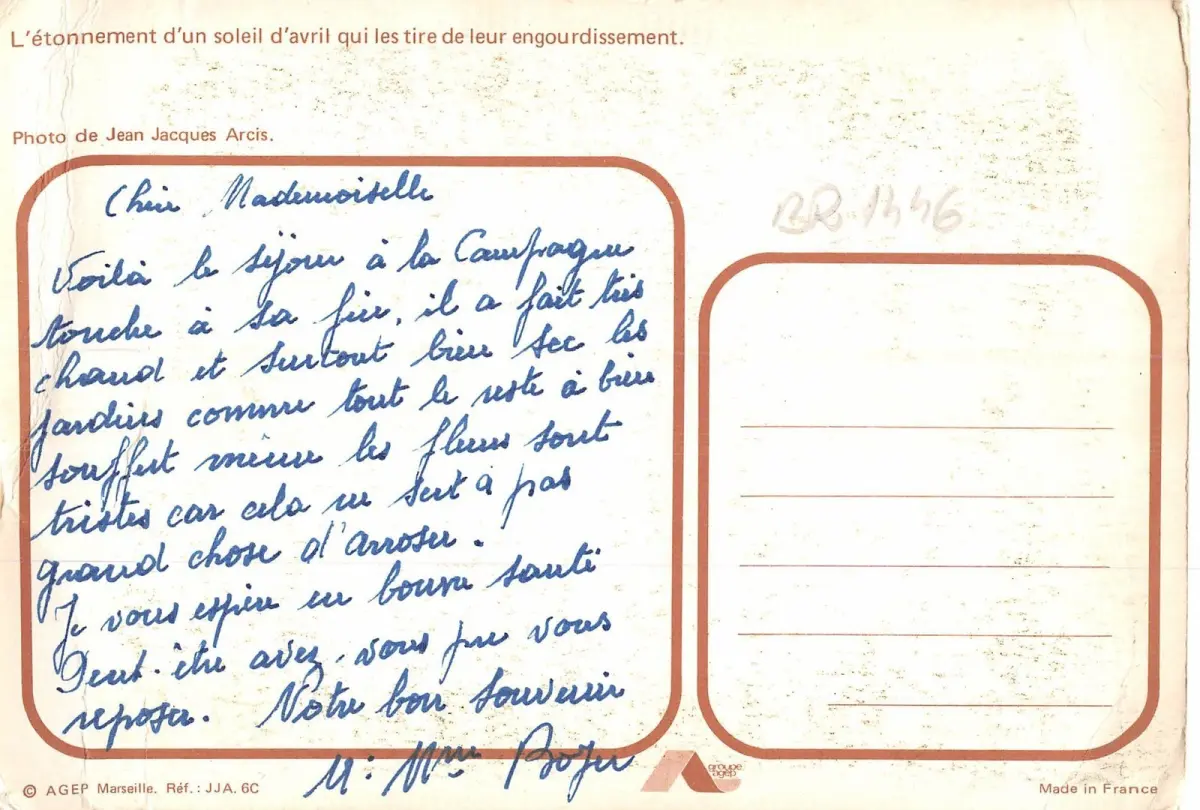 L'étonnement d'un soleil d'avril qui les tire de leur engourdissement.
Photo de Jean Jacques Arcis.
BR. 1446
Chère Mademoiselle
Voilà le séjour à la Campagne
touche à sa fin, il a fait très
chaud et surtout bien sec les
jardins comme tout le reste à bien
souffert même les fleurs sont
tristes car cela ne sert à pas
grand chose d'arroser.
Je vous espère en bonne santé
Peut-être avez-vous pu vous
reposer. Notre bon souvenir
M: Mme Boyer
groupe
agep
© AGEP Marseille. Réf. : JJA. 6C
Made in France